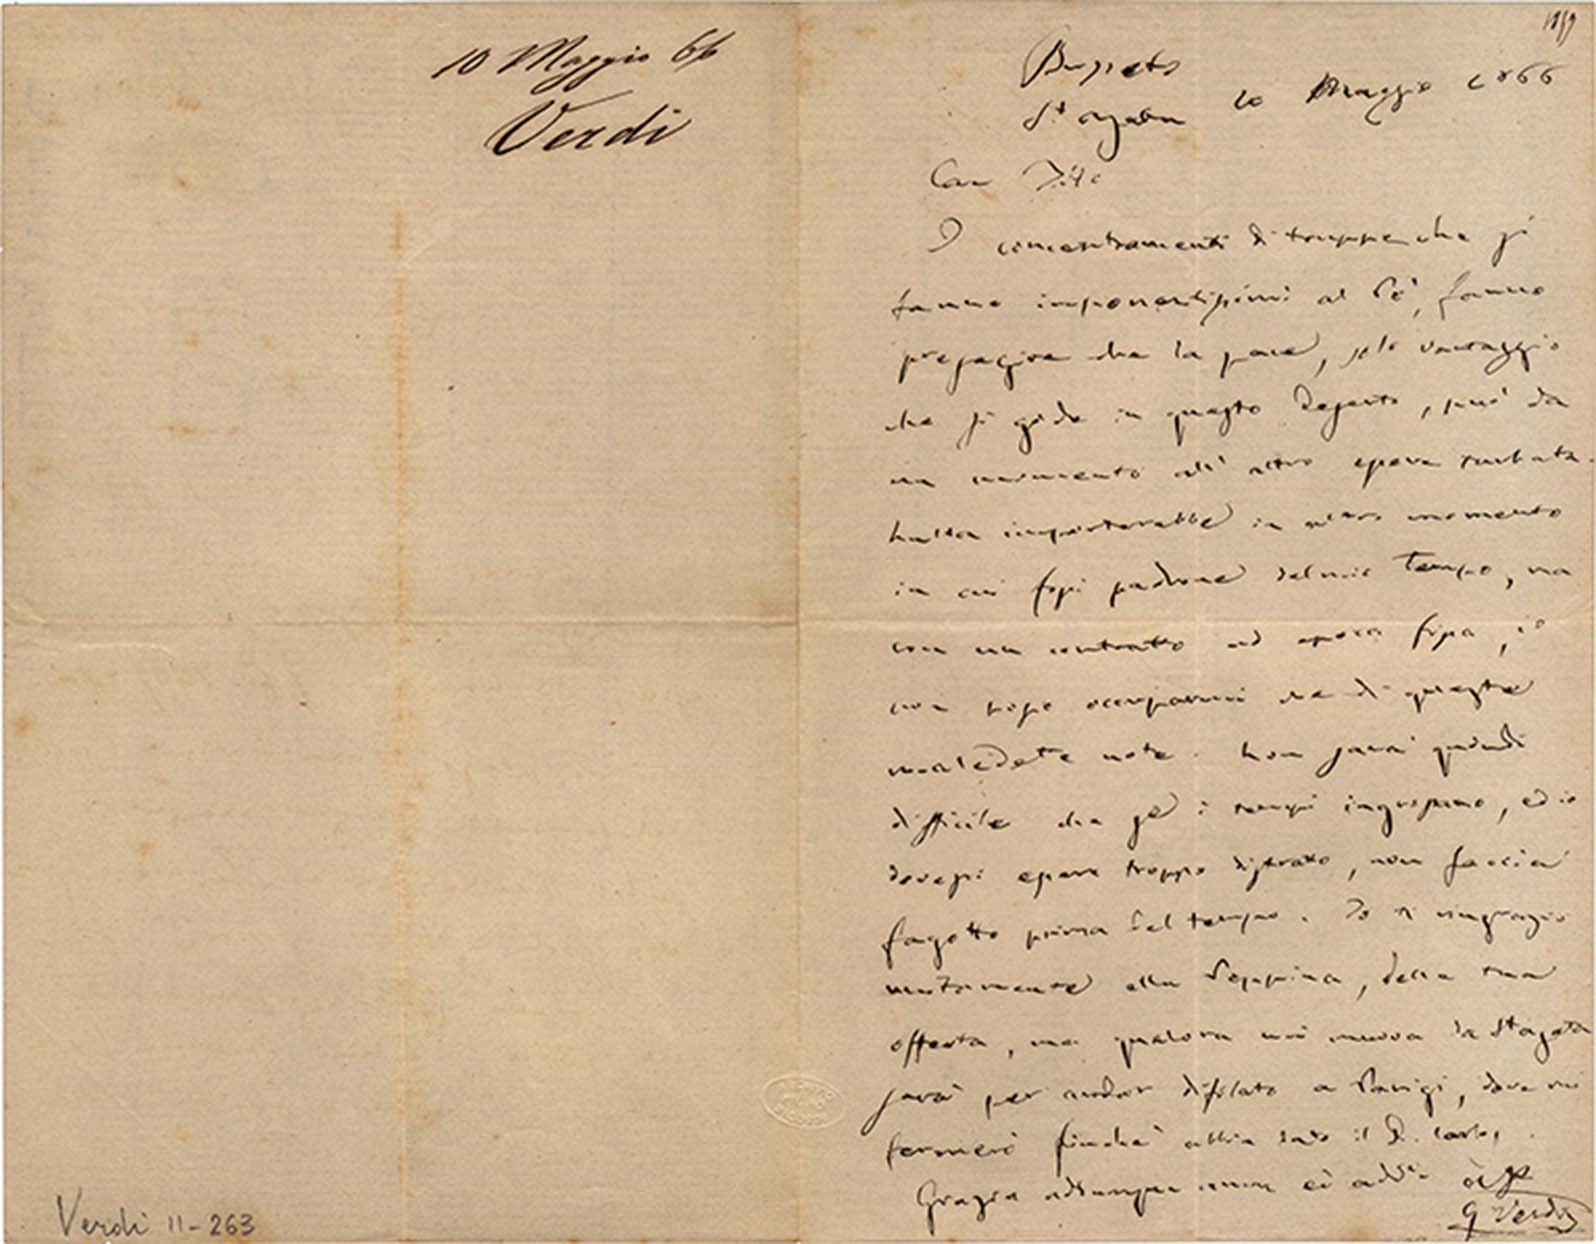 10 Maggio 66
Verdi
Verdi 11-263
Busseto
St Agata 10 Maggio 1866
Caro Tito
I concentramenti di truppe che si
fanno imponentissimi al Pò, fanno
presagire che la pace, solo vantaggio
che si gode in questo deserto, può da
un momento all' altro essere turbata.
Nulla importerebbe in altro momento
in cui fossi padrone del mio tempo, ma
con un contratto ad epoca fissa, io
non posso occuparmi che di queste
maledette note. Non sarà quindi
difficile che se i tempi ingrossano, ed io
dovessi essere troppo distratto, non faccia
fagotto prima del tempo. Io ti ringrazio
unitamente alla Peppina, della tua
offerta, ma qualora mi muova da St Agata
sarà per andar difilato a Parigi, dove mi
fermerò finchè abbia dato il D. Carlos.
Grazie adunque ancora ed addio
G Verdi